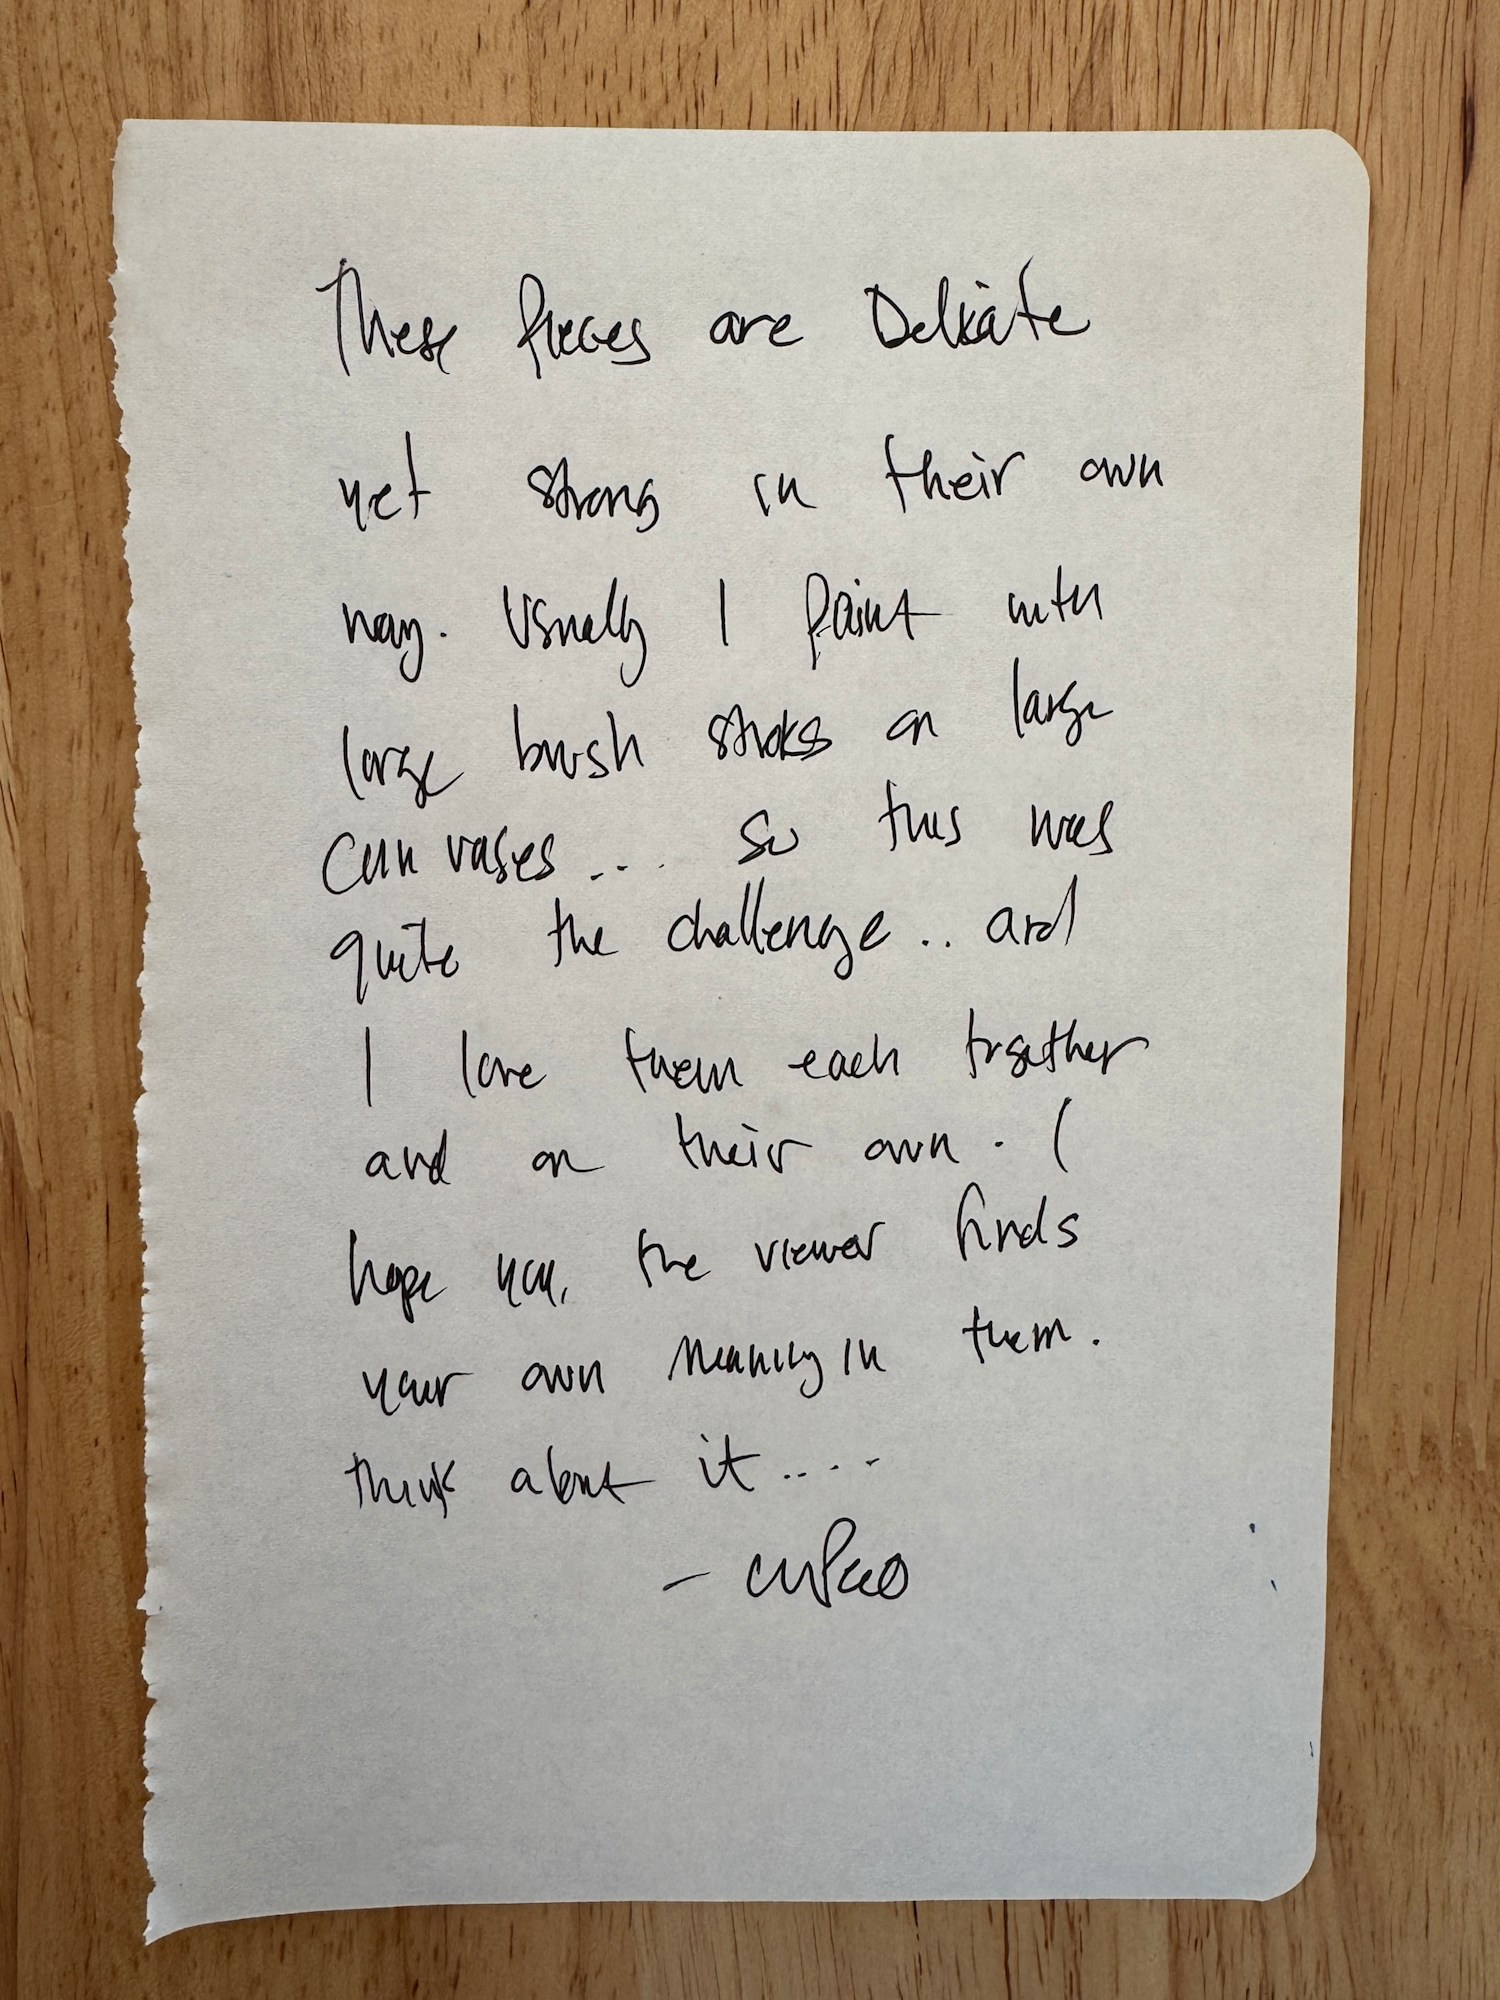 These Pieces are Delicate
yet strong in their own
way. Usually I paint with
large brush strokes on large
canvases... so this was
quite the challenge.. and
I love them each together
and on their own. I
hope you, the viewer finds
your own meaning in them.
think about it....